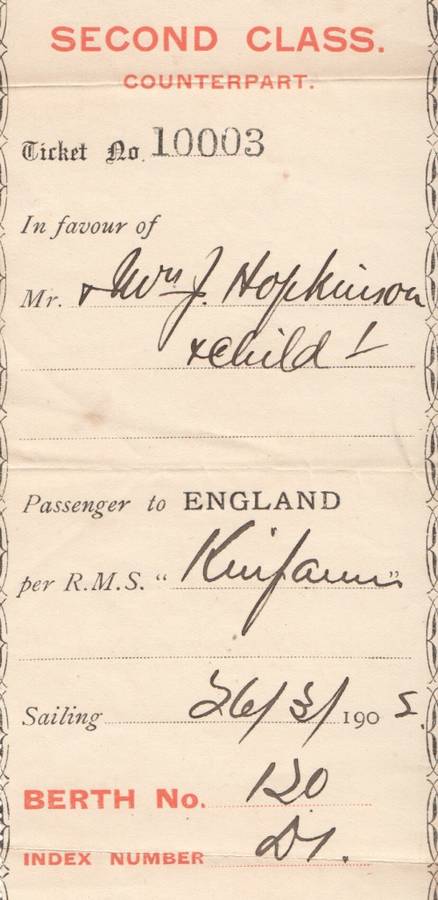 SECOND CLASS.
COUNTERPART.
Ticket No. 10003
In favour of
Mr. & Mrs J. Hopkinson
& Child
Passenger to ENGLAND
per R.M.S. "Kinfauns"
Sailing 26/3/1905.
BERTH No. 120
INDEX NUMBER D1.